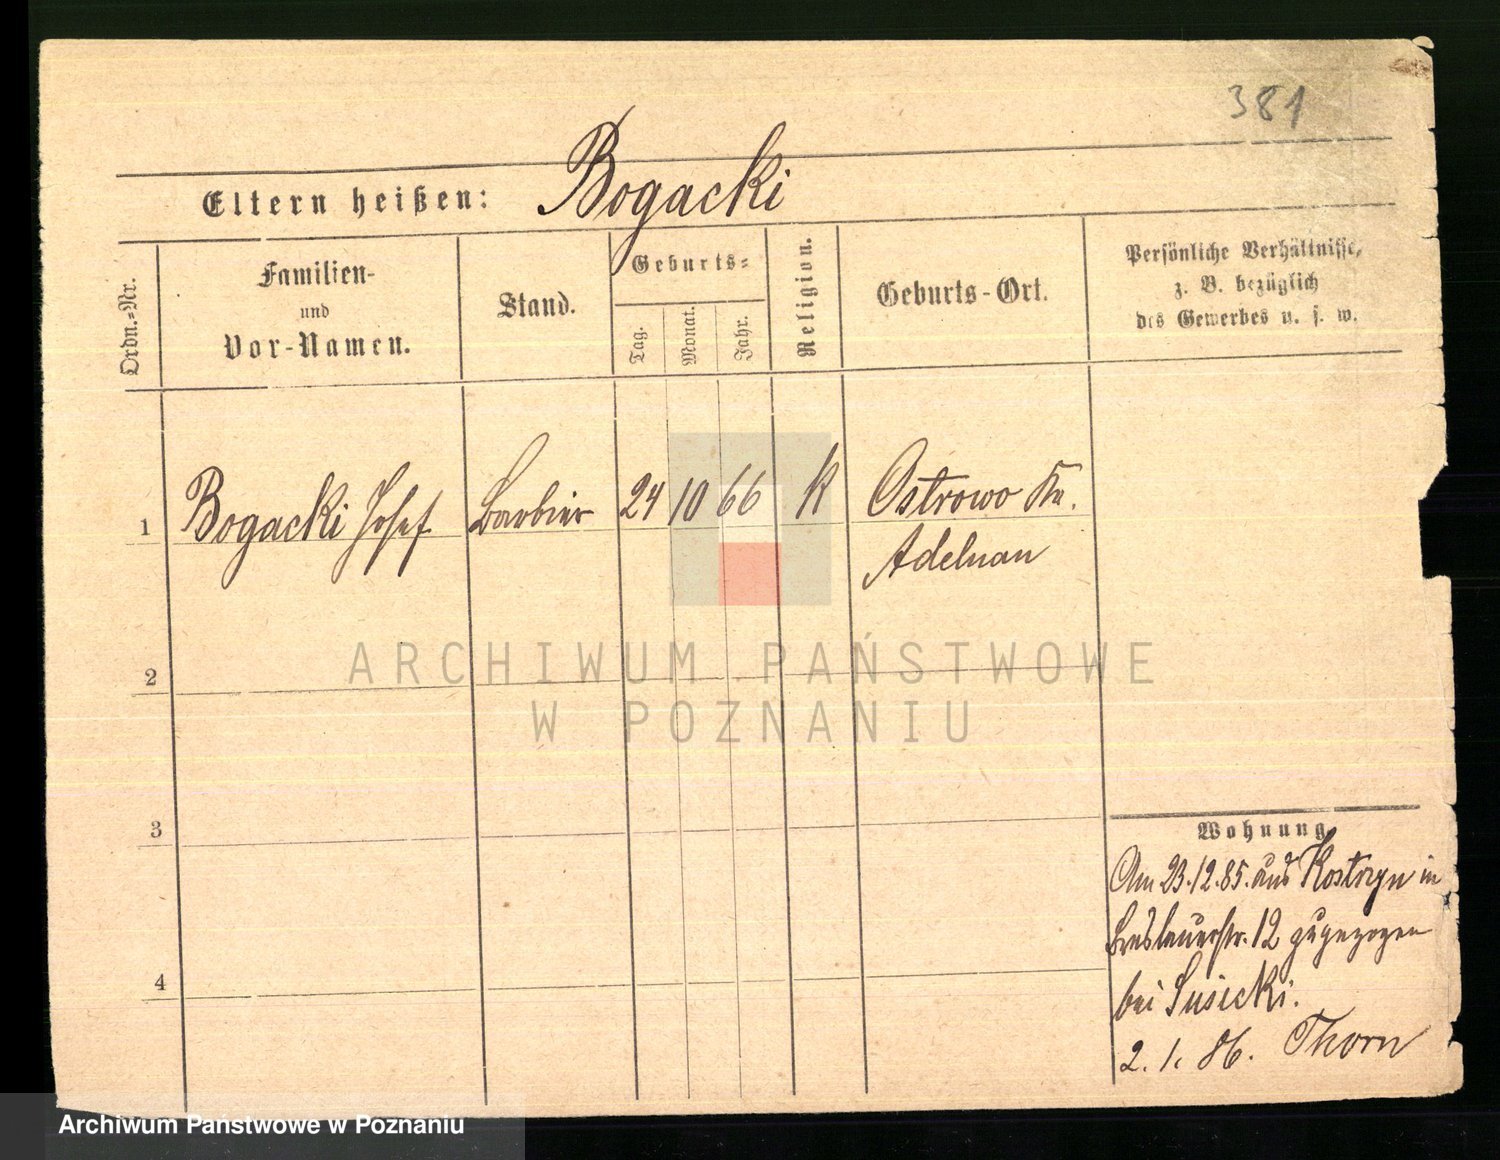 381
Eltern heißen: Bogacki
Ordn.-Nr.
Familien-
und
Vor-Namen.
Stand.
Geburts-
Tag.
Monat.
Jahr.
Religion.
Geburts-Ort.
Persönliche Verhältnisse,
z. B. bezüglich
des Gewerbes u. s. w.
1 Bogacki Josef Barbier 24 10 66 K Ostrowo Kr.
Adelnau
2
3
4
ARCHIWUM PAŃSTWOWE
W POZNANIU
Wohnung.
Am 23.12.85. aus Kostrzyn in
Breslauerstr. 12 zugezogen
bei Susicki.
2. 1. 86. Thorn
Archiwum Państwowe w Poznaniu